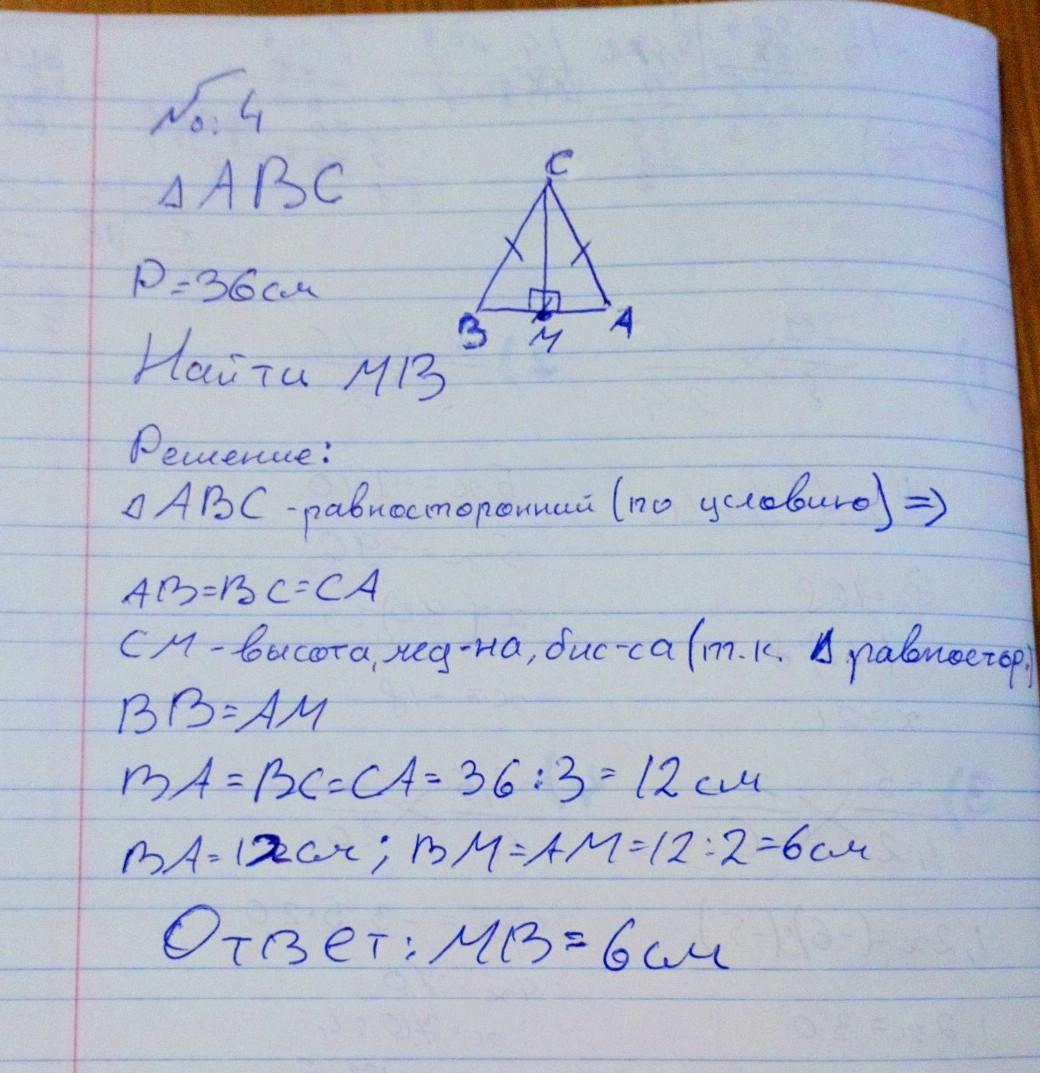 №: 4
△ABC
C
P=36см
B
M
A
Найти MB
Решение:
△ABC - равносторонний (по условию) =>
AB=BC=CA
CM - высота, мед-на, бис-са (т.к. △ равностор.)
BB=AM
BA=BC=CA=36:3=12см
BA=12см; BM=AM=12:2=6см
Ответ: MB=6см